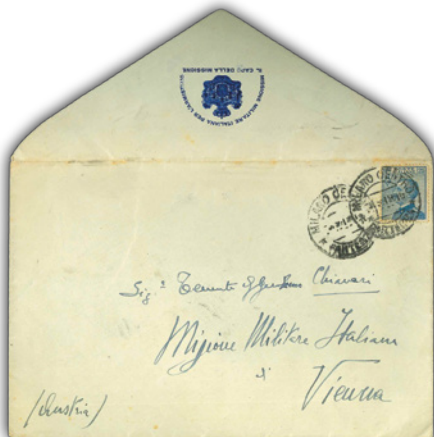 MISSIONE MILITARE ITALIANA PER L'ARMISTIZIO
IL CAPO DELLA MISSIONE
MILANO CENTRO
MILANO CENTRO
Sig. Tenente Chiavari
Missione Militare Italiana
di
Vienna
(Austria)